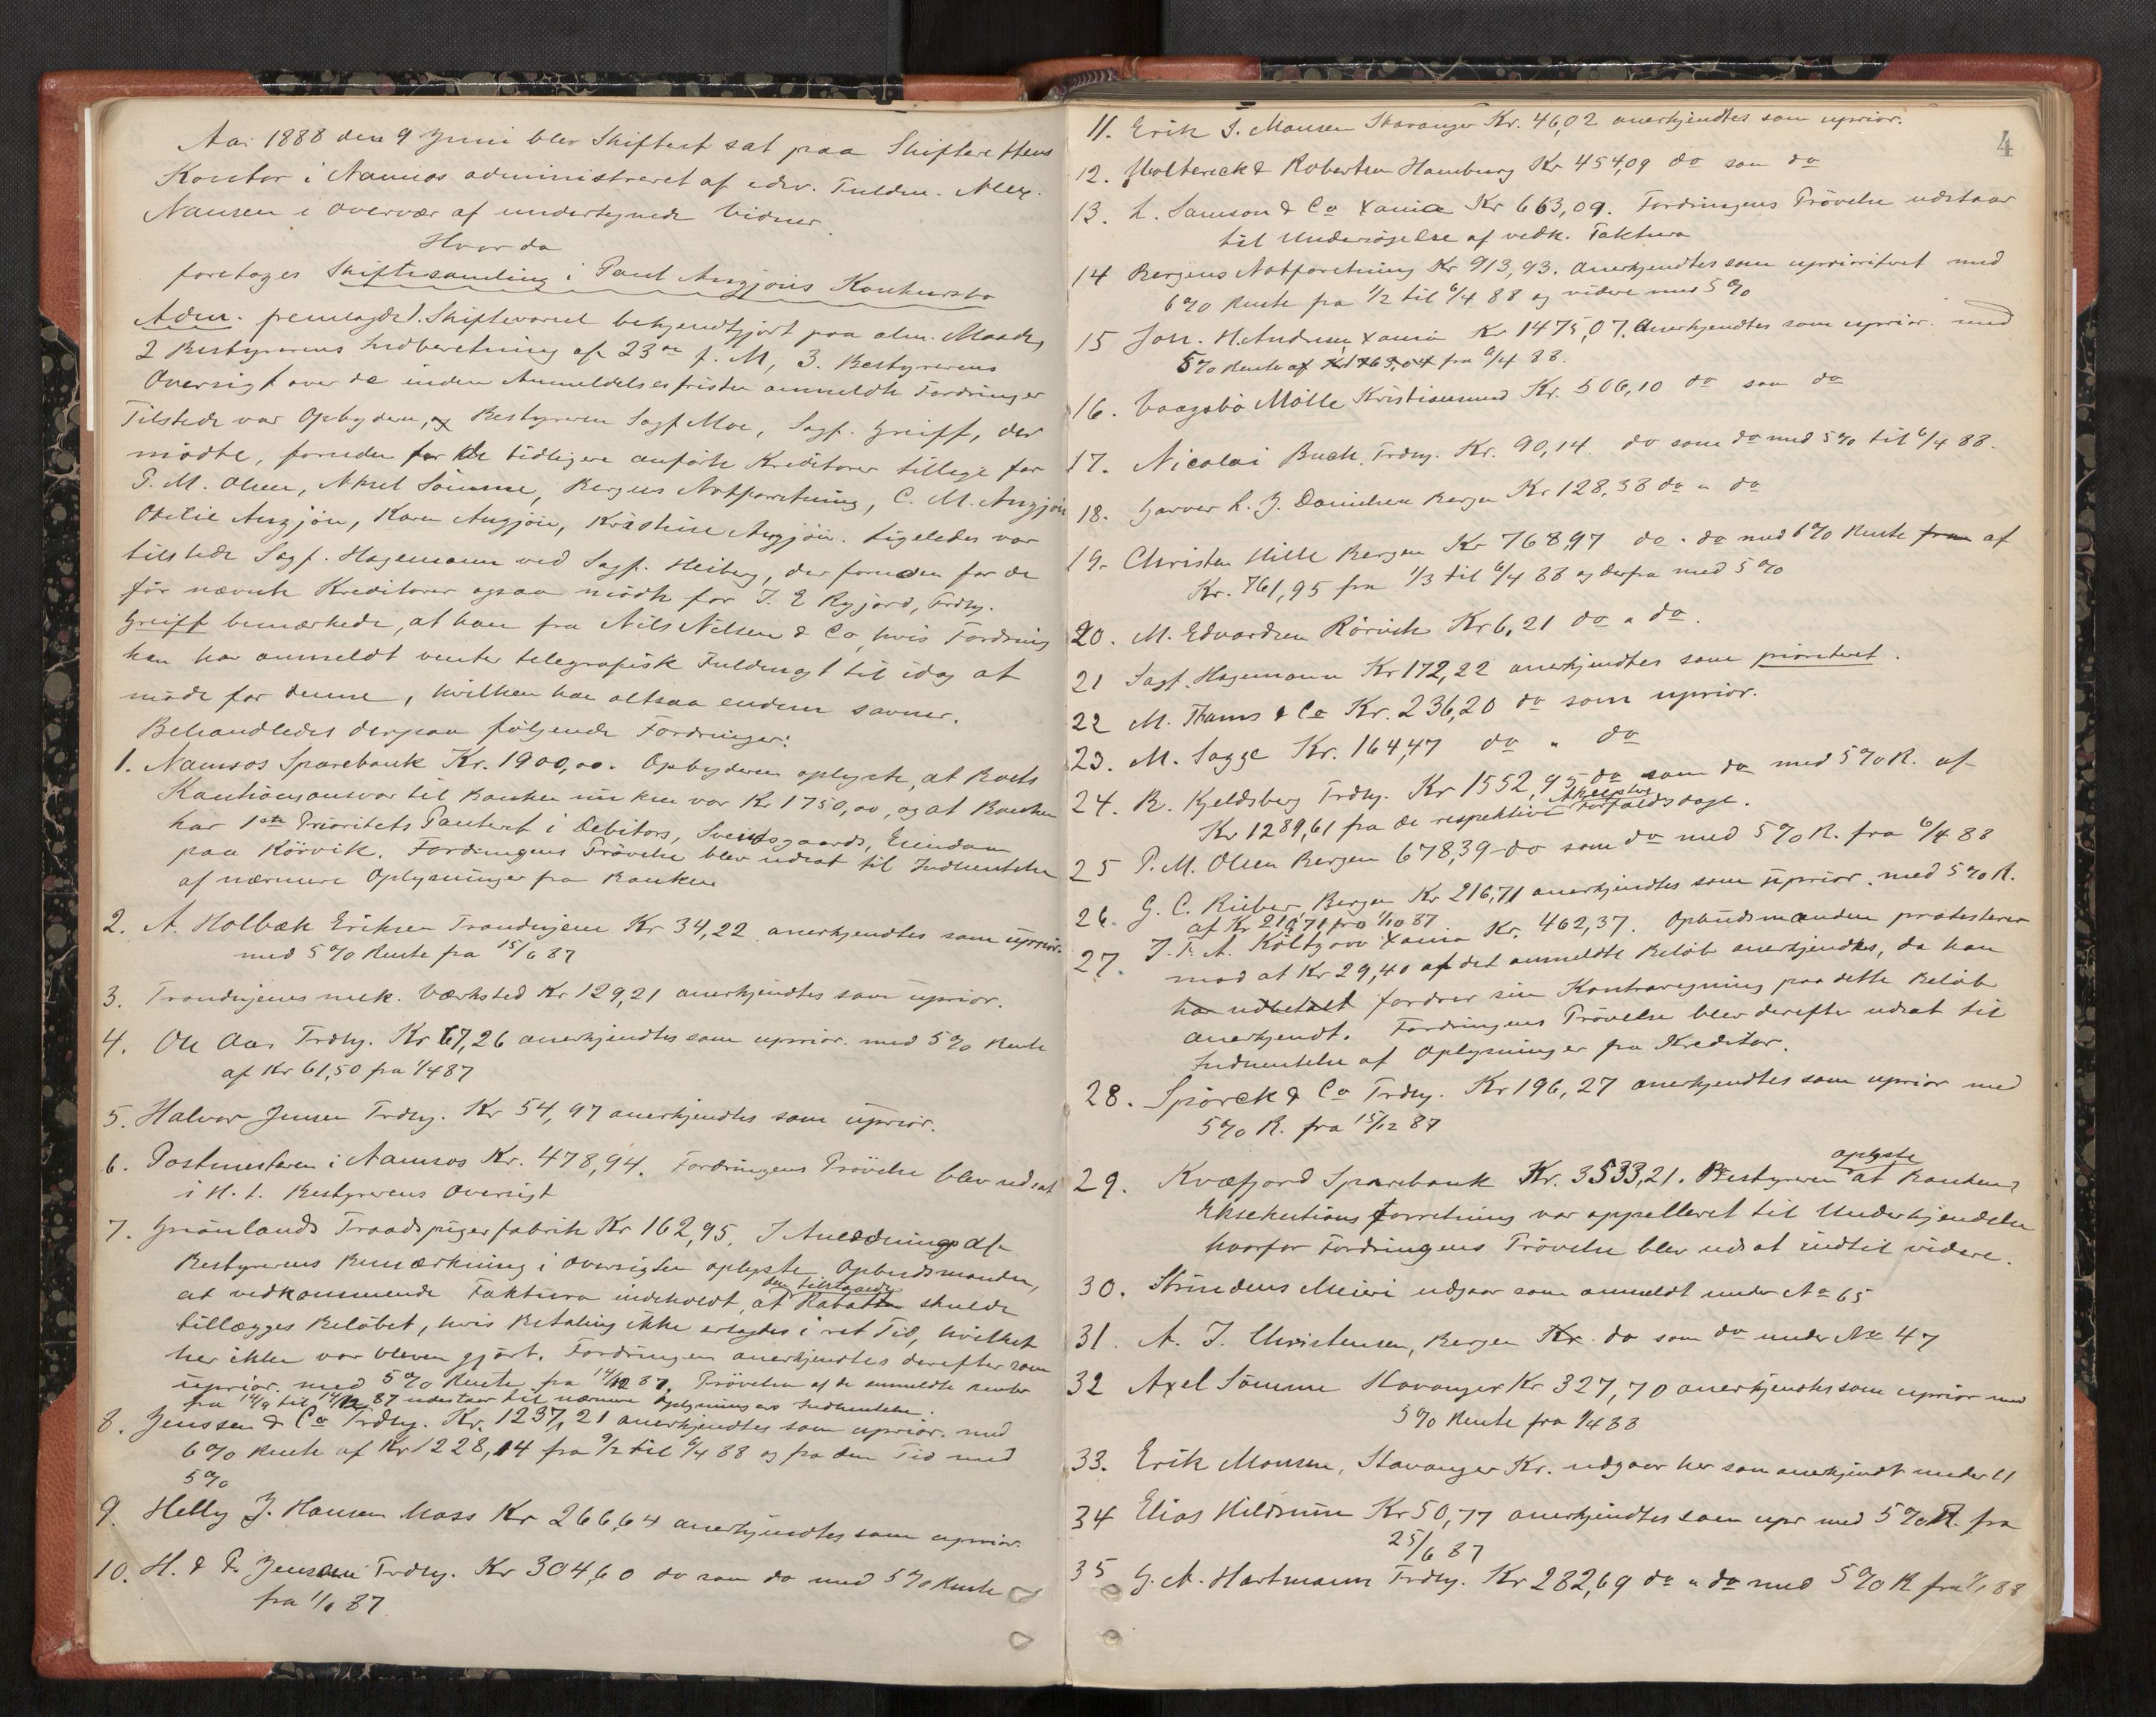 Aar 1888 den 9 Juni blev Skifteret sat paa Skifterettens
Kontor i Namsos administreret af edsv. Fuldm. Alex.
Nansen i Overvær af undertegnede Vidner.
Hvor da
foretoges Skiftesamling i Paul Angjöis Konkursbo
Adm. fremlagde 1. Skiftevarsel bekjendtgjort paa alm. Maade,
2 Bestyrerens Indberetning af 23de f. M, 3. Bestyrerens
Oversigt over de inden Anmeldelsesfristen anmeldte Fordringer
Tilstede var Opbyderen, og Bestyreren Sagf Moe, Sagf. Greiff, der
mödte, foruden for de tidligere anförte Kreditorer tillige for
P. M. Olsen, Aksel Sömme, Bergens Notforretning, C. M. Angjöi
Otilie Angjöi, Karen Angjöi, Kristine Angjöi. Ligeledes var
tilstede Sagf. Hagemann ved Sagf. Heiberg, der foruden for de
för nævnte Kreditorer ogsaa mödte for J. E Rygjord, Trdhj.
Greiff bemærkede, at han fra Nils Nilsen & Co, hvis Fordring
han har anmeldt venter telegrafisk Fuldmagt til idag at
möde for denne, hvilken han altsaa endnu savner.
Behandledes derpaa fölgende Fordringer:
1. Namsos Sparebank Kr. 1900,00. Opbyderen oplyste, at Boets
Kautionsansvar til Banken nu kun var Kr 1750,00, og at Banken
har 1ste Prioritets Panteret i Debitors, Svendsgaards, Eiendom
paa Rörvik. Fordringens Prövelse blev udsat til Indhentelse
af nærmere Oplysninger fra Banken
2. A. Holbæk Eriksen Trondhjem Kr 34,22 anerkjendtes som uprior.
med 5% Rente fra 15/6 87
3. Trondhjems mek. Værksted Kr 129,21 anerkjendtes som uprior.
4. Ole Aas Trdhj. Kr 67,26 anerkjendtes som uprior. med 5% Rente
af Kr 61,50 fra 1/4 87
5. Halvor Jensen Trdhj. Kr 54,97 anerkjendtes som uprior.
6. Postmesteren i Namsos Kr. 478,94. Fordringens Prövelse blev udsat
i H. t. Bestyrerens Oversigt
7. Grönlands Traadspigerfabrik Kr 162,95. I Anledning af
Bestyrerens Bemærkning i Oversigten oplyste Opbudsmanden,
at vedkommende Faktura indeholdt, at den tilstaaede Rabat skulde
tillægges Belöbet, hvis Betaling ikke erlagdes i ret Tid, hvilket
her ikke var bleven gjort. Fordringen anerkjendtes derefter som
uprior. med 5% Rente fra 14/12 87. Prövelsen af de anmeldte Renter
fra 14/9 til 14/12 87 udestaar til nærmere Oplysningers Indhentelse.
8. Jenssen & Co Trdhj. Kr. 1237,21 anerkjendtes som uprior. med
6% Rente af Kr 1228,14 fra 9/2 til 6/4 88 og fra den Tid med
5%
9. Helly J. Hansen Moss Kr 266,64 anerkjendtes som uprior.
10. H. & P. Jenssen Trdhj. Kr 304,60 do som do med 5% Rente
fra 1/1 87
4
11. Erik S. Monsen Stavanger Kr. 46,02 anerkjendtes som uprior.
12. Woltereck & Robertson Hamburg Kr 454,09 do som do
13. L. Samson & Co Xania Kr 663,09. Fordringens Prövelse udstaar
til Undersögelse af vedk. Faktura
14 Bergens Notforetning Kr 913,93. anerkjendtes som uprioriteret med
6% Rente fra 1/2 til 6/4 88 og videre med 5%
15 Joh. H. Andresen Xania Kr 1475,07. Anerkjendtes som uprior. med
5% Rente af Kr 1463.04 fra 6/4 88.
16. Vaagsbö Mölle Kristiansund Kr. 506,10 do som do
17. Nicolai Buch, Trdhj. Kr. 90,14. do som do med 5% til 6/4 88.
18. Garver L. J. Danielsen Bergen Kr 128,38 do " do
19. Christen Hille Bergen Kr 768,97 do . do med 6% Rente fra af
Kr. 761,95 fra 1/3 til 6/4 88 og derfra med 5%
20. M. Edvardsen Rörvik Kr 6,21 do " do.
21 Sagf. Hagemann Kr 172,22 anerkjendtes som prioriteret.
22 M. Thams & Co Kr. 236,20 do som uprior.
23. M. Sagge Kr. 164,47 do " do
24. R. Kjeldsberg Trdhj. Kr 1552,95 do som do med 5% R. af
Kr 1289,61 fra de respektive Akcepters Forfaldsdage.
25 P. M. Olsen Bergen 678,39 do som do med 5% R. fra 6/4 88
26. G. C. Rieber, Bergen Kr 216,71 anerkjendtes som uprior. med 5% R.
af Kr 216,71 fra 1/10 87
27. J. F. A. Koltzow Xania Kr. 462,37. Opbudsmanden protesterer
mod at Kr 29,40 af det anmeldte Belöb anerkjendtes, da han
har udbetalt fordrer sin Kontraregning paa dette Belöb
anerkjendt. Fordringens Prövelse blev derefter udsat til
Indhentelse af Oplysninger fra Kreditor.
28. Spörck & Co Trdhj. Kr 196,27 anerkjendtes som uprior med
5% R. fra 15/12 87
29. Kvæfjord Sparebank Kr. 3533,21. Bestyreren oplyste at Bankens
Eksekutions forretning var appelleret til Underkjendelse
hvorfor Fordringens Prövelse blev udsat indtil videre.
30. Strindens Meieri udgaar som anmeldt under No 65
31. A. J. Christensen, Bergen Kr. do som do under No 47
32 Axel Sömme Stavanger Kr 327,70 anerkjendtes som uprior med
5% Rente fra 1/4 88
33. Erik Monsen, Stavanger Kr. udgaar her som anerkjendt under 11
34 Elias Hildrum Kr 50,77 anerkjendtes som upr med 5% R. fra
25/6 87
35 G. A. Hartmann Trdhj. Kr 282,69 do " do med 5% R fra 1/1 88